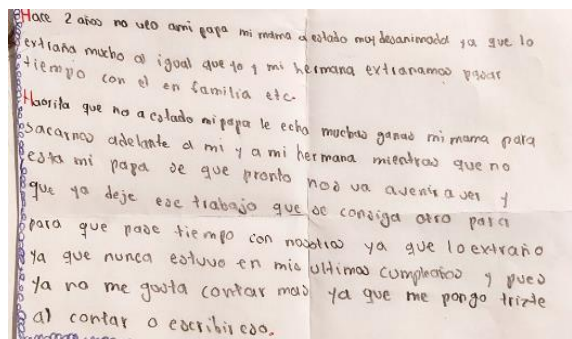 Hace 2 años no veo ami papa mi mama a estado muy desanimada ya que lo
extraña mucho al igual que yo y mi hermana extranamos pasar
tiempo con el en familia etc.
Haorita que no a estado mi papa le echo muchas ganas mi mama para
sacarnos adelante a mi y a mi hermana mientras que no
esta mi papa se que pronto nos va avenir a ver y
que ya deje ese trabajo que se consiga otro para
para que pase tiempo con nosotros ya que lo extraño
ya que nunca estuvo en mis ultimos cumpleaños y pues
ya no me gusta contar mas ya que me pongo trizte
al contar o escribir eso.